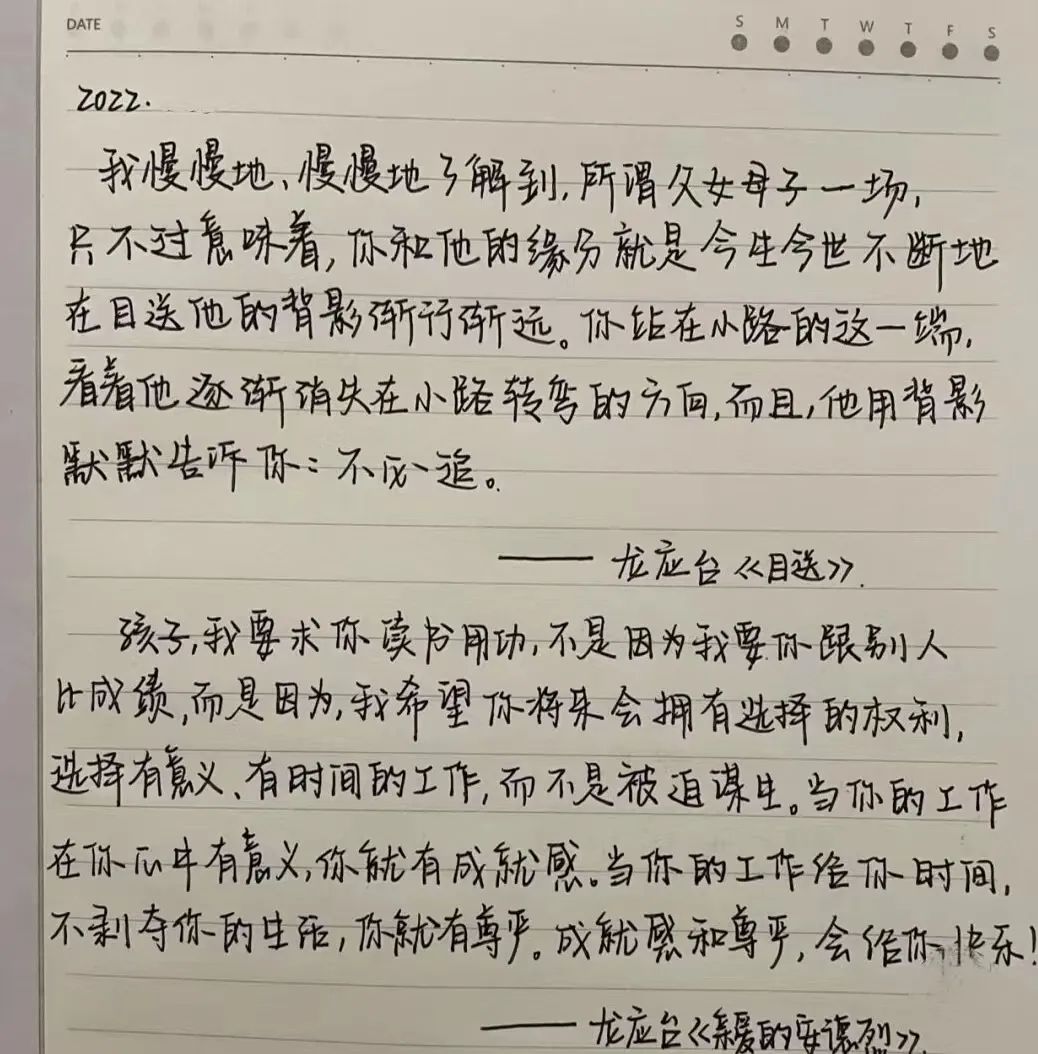 DATE
S M T W T F S
2022.
我慢慢地、慢慢地了解到,所谓父女母子一场,
只不过意味着,你和他的缘分就是今生今世不断地
在目送他的背影渐行渐远。你站在小路的这一端,
看着他逐渐消失在小路转弯的方向,而且,他用背影
默默告诉你:不必追。
——龙应台《目送》.
孩子,我要求你读书用功,不是因为我要你跟别人
比成绩,而是因为,我希望你将来会拥有选择的权利,
选择有意义、有时间的工作,而不是被迫谋生。当你的工作
在你心中有意义,你就有成就感。当你的工作给你时间,
不剥夺你的生活,你就有尊严。成就感和尊严,会给你快乐!
——龙应台《亲爱的安德烈》.